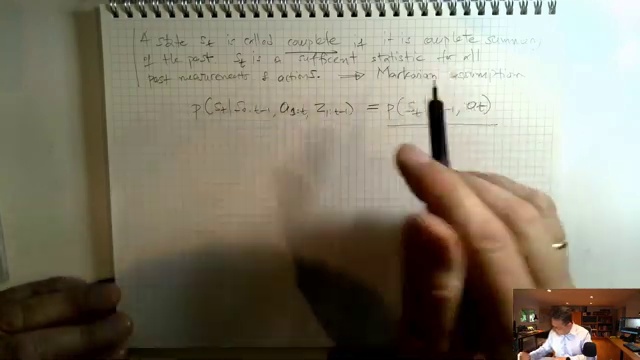 A state s_t is called complete if it is complete summary
of the past s_t is a sufficient statistic for all
past measurements & actions. ⟹ Markovian assumption
p(s_t | s_{0:t-1}, a_{1:t}, z_{1:t-1}) = p(s_t | a_t)